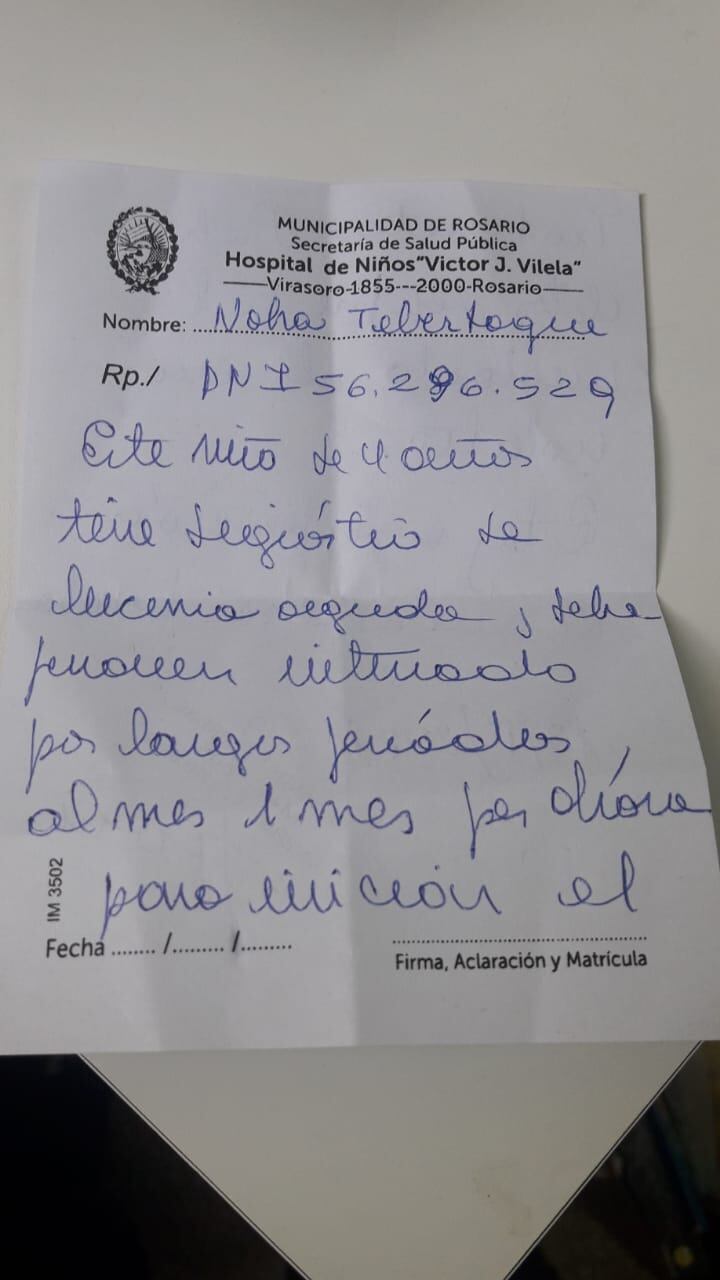 MUNICIPALIDAD DE ROSARIO
Secretaría de Salud Pública
Hospital de Niños"Victor J. Vilela"
Virasoro-1855---2000-Rosario
Nombre: Noha
Rp./ DNI 56.296.529
Este niño de 4 años
tiene diagnóstico de
leucemia aguda, debe
permanecer internado
por largos períodos,
al menos 1 mes por ahora
para iniciar el
IM 3502
Fecha ........ /......... /.........
Firma, Aclaración y Matrícula